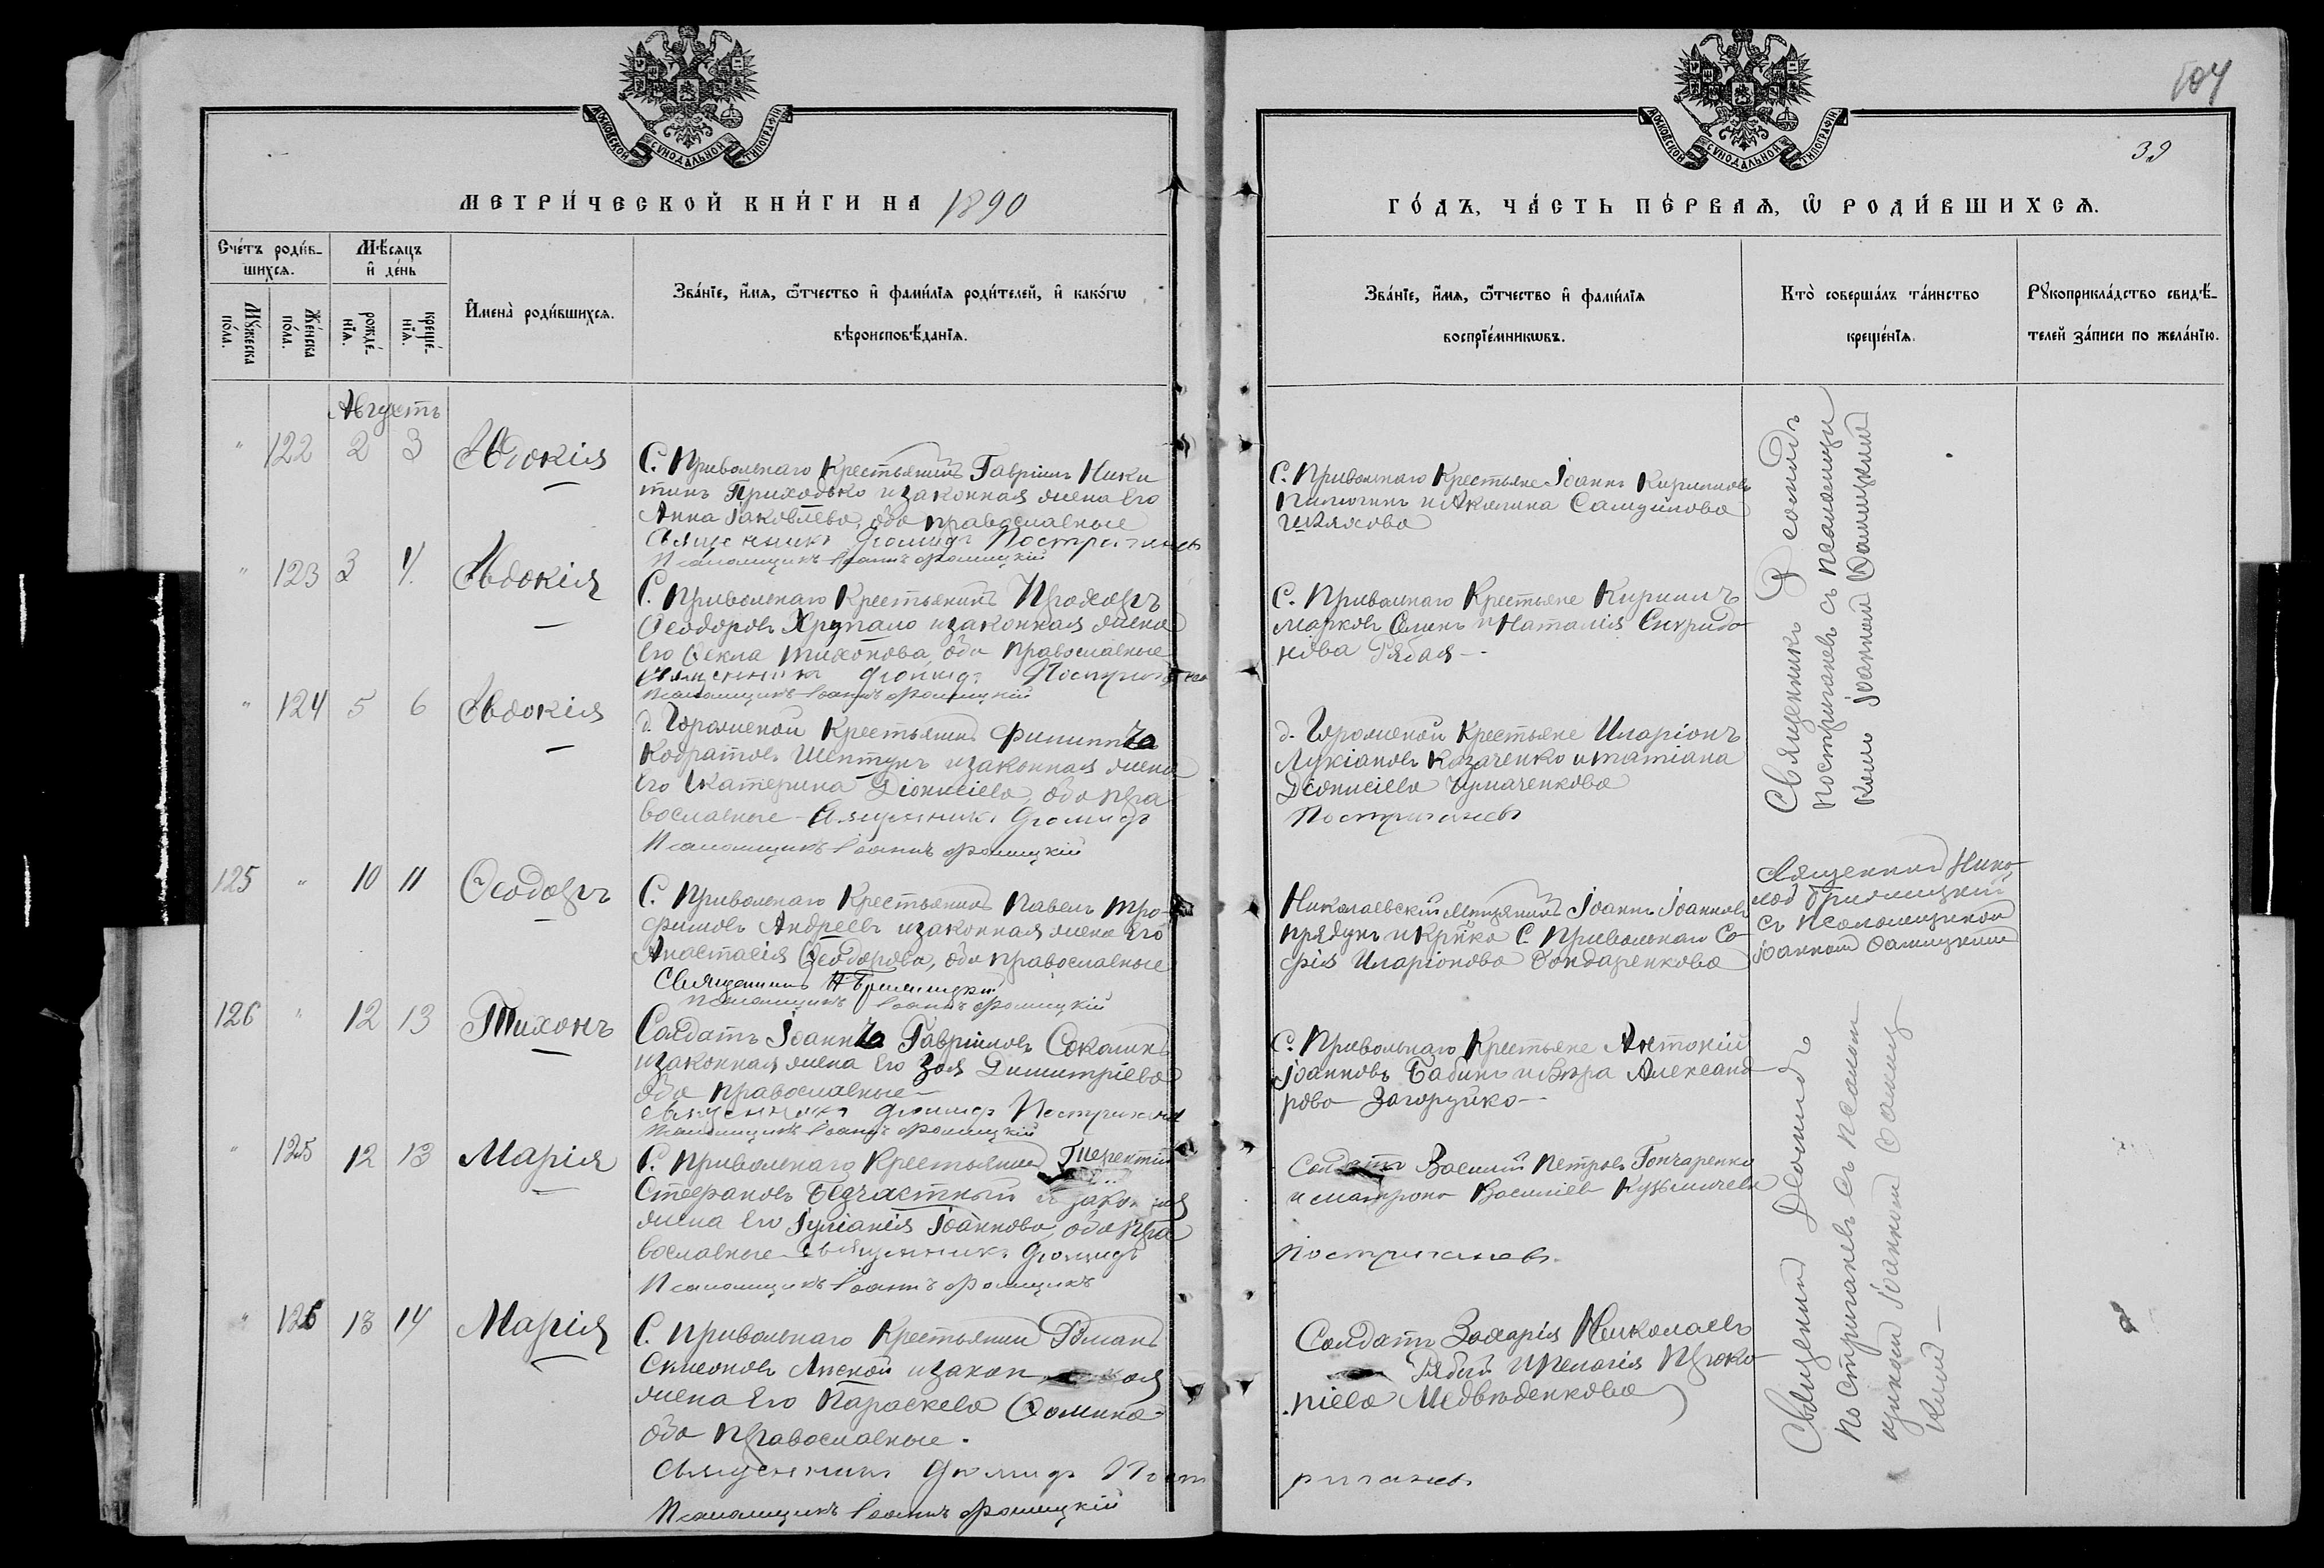 104
39
МОСКОВСКОЙ СѴНОДАЛЬНОЙ ТИПОГРАФІИ
МОСКОВСКОЙ СѴНОДАЛЬНОЙ ТИПОГРАФІИ
МЕТРИ́ЧЕСКОЙ КНИ́ГИ НА 1890
ГО́ДЪ, ЧА́СТЬ ПЕ́РВАѦ, Ѽ РОДИ́ВШИХСѦ.
Сче́тъ роди́в-
шихсѧ.
Мꙋ́жеска по́ла.
Же́нска по́ла.
Мѣ́сѧцъ и҆ де́нь
рожде́-нїѧ.
креще́-нїѧ.
И҆мена̀ роди́вшихсѧ.
Зва́нїе, и҆́мѧ, ѻ҆́тчество и҆ фами́лїѧ роди́телей, и҆ како́гѡ
вѣроисповѣ́данїѧ.
Зва́нїе, и҆́мѧ, ѻ҆́тчество и҆ фами́лїѧ
воспрїе́мникѡвъ.
Кто̀ соверша́лъ та́инство
креще́нїѧ.
Рꙋкоприкла́дство свидѣ́-
телей за́писи по жела́нїю.
Августъ
" 122 2 3 Евдокія
С. Привольнаго Крестьянинъ Гавріилъ Ники
тинъ Приходько и законная жена его
Анна Іаковлева, оба православные
Священникъ Діомидъ Постриганевъ
Псаломщикъ Іоаннъ Фомицкій
С. Привольнаго Крестьяне Іоаннъ Кирилловъ
и Акилина
Шляхова
Священникъ Діомидъ
Постриганевъ съ псаломщи
комъ Іоанномъ Фомицкимъ
" 123 3 4. Евдокія
С. Привольнаго Крестьянинъ Прохоръ
Ѳеодоровъ Хрупало и законная жена
его Ѳекла Тихонова, оба православные
Священникъ Діомидъ Постриганевъ
Псаломщикъ Іоаннъ Фомицкій
С. Привольнаго Крестьяне Кириллъ
Марковъ и Наталія Спиридо
нова Рябая
" 124 5 6 Евдокія
д. Крестьянинъ Филиппъ
Кодратовъ Шептунъ и законная жена
его Екатерина Діонисіева, оба пра
вославные Священникъ Діомидъ
Псаломщикъ Іоаннъ Фомицкій
д. Крестьяне Иларіонъ
Лукіановъ Козаченко и Татіана
Діонисіева Чумаченкова
Постриганевъ
125 " 10 11 Ѳеодоръ
С. Привольнаго Крестьянинъ Павелъ Тро-
фимовъ Андреевъ и законная жена его
Анастасія Ѳеодорова, оба православные
Священникъ Н.
Псаломщикъ Іоаннъ Фомицкій
Николаевскій Мѣщанинъ Іоаннъ Іоанновъ
Прядунъ и Кр-нка С. Привольнаго Со-
фія Иларіонова Бондаренкова
Священникъ Нико-
лай
съ псаломщикомъ
Іоанномъ Фомицкимъ
126 " 12 13 Тихонъ
Солдатъ Іоаннъ Гавріиловъ
и законная жена его Зоя Димитріева
оба православные
Священникъ Діомидъ Постриганевъ
Псаломщикъ Іоаннъ Фомицкій
С. Привольнаго Крестьяне Антоній
Іоанновъ Бабинъ и Вѣра Александ
рова Загоруйко
" 125 12 13 Марія
С. Привольнаго Крестьянинъ Терентій
Стефановъ Безчастный и законная
жена его Іуліанія Іоаннова, оба пра
вославные Священникъ Діомидъ
Псаломщикъ Іоаннъ
Солдатъ Василій Петровъ Гончаренко
и Матрона Василіева Кузьмичева
Постриганевъ.
Священникъ Діомидъ
Постриганевъ съ псалом
щикомъ Іоанномъ Фомиц
кимъ
" 126 13 14 Марія
С. Привольнаго Крестьянинъ Романъ
Симеоновъ и закон ная
жена его Параскева Ѳомина
оба Православные.
Священникъ Діомидъ Пост
Псаломщикъ Іоаннъ Фомицкій
Солдатъ Захарія Николаевъ
Рябый и Пелагія Проко
піева Медвѣденкова
риганевъ